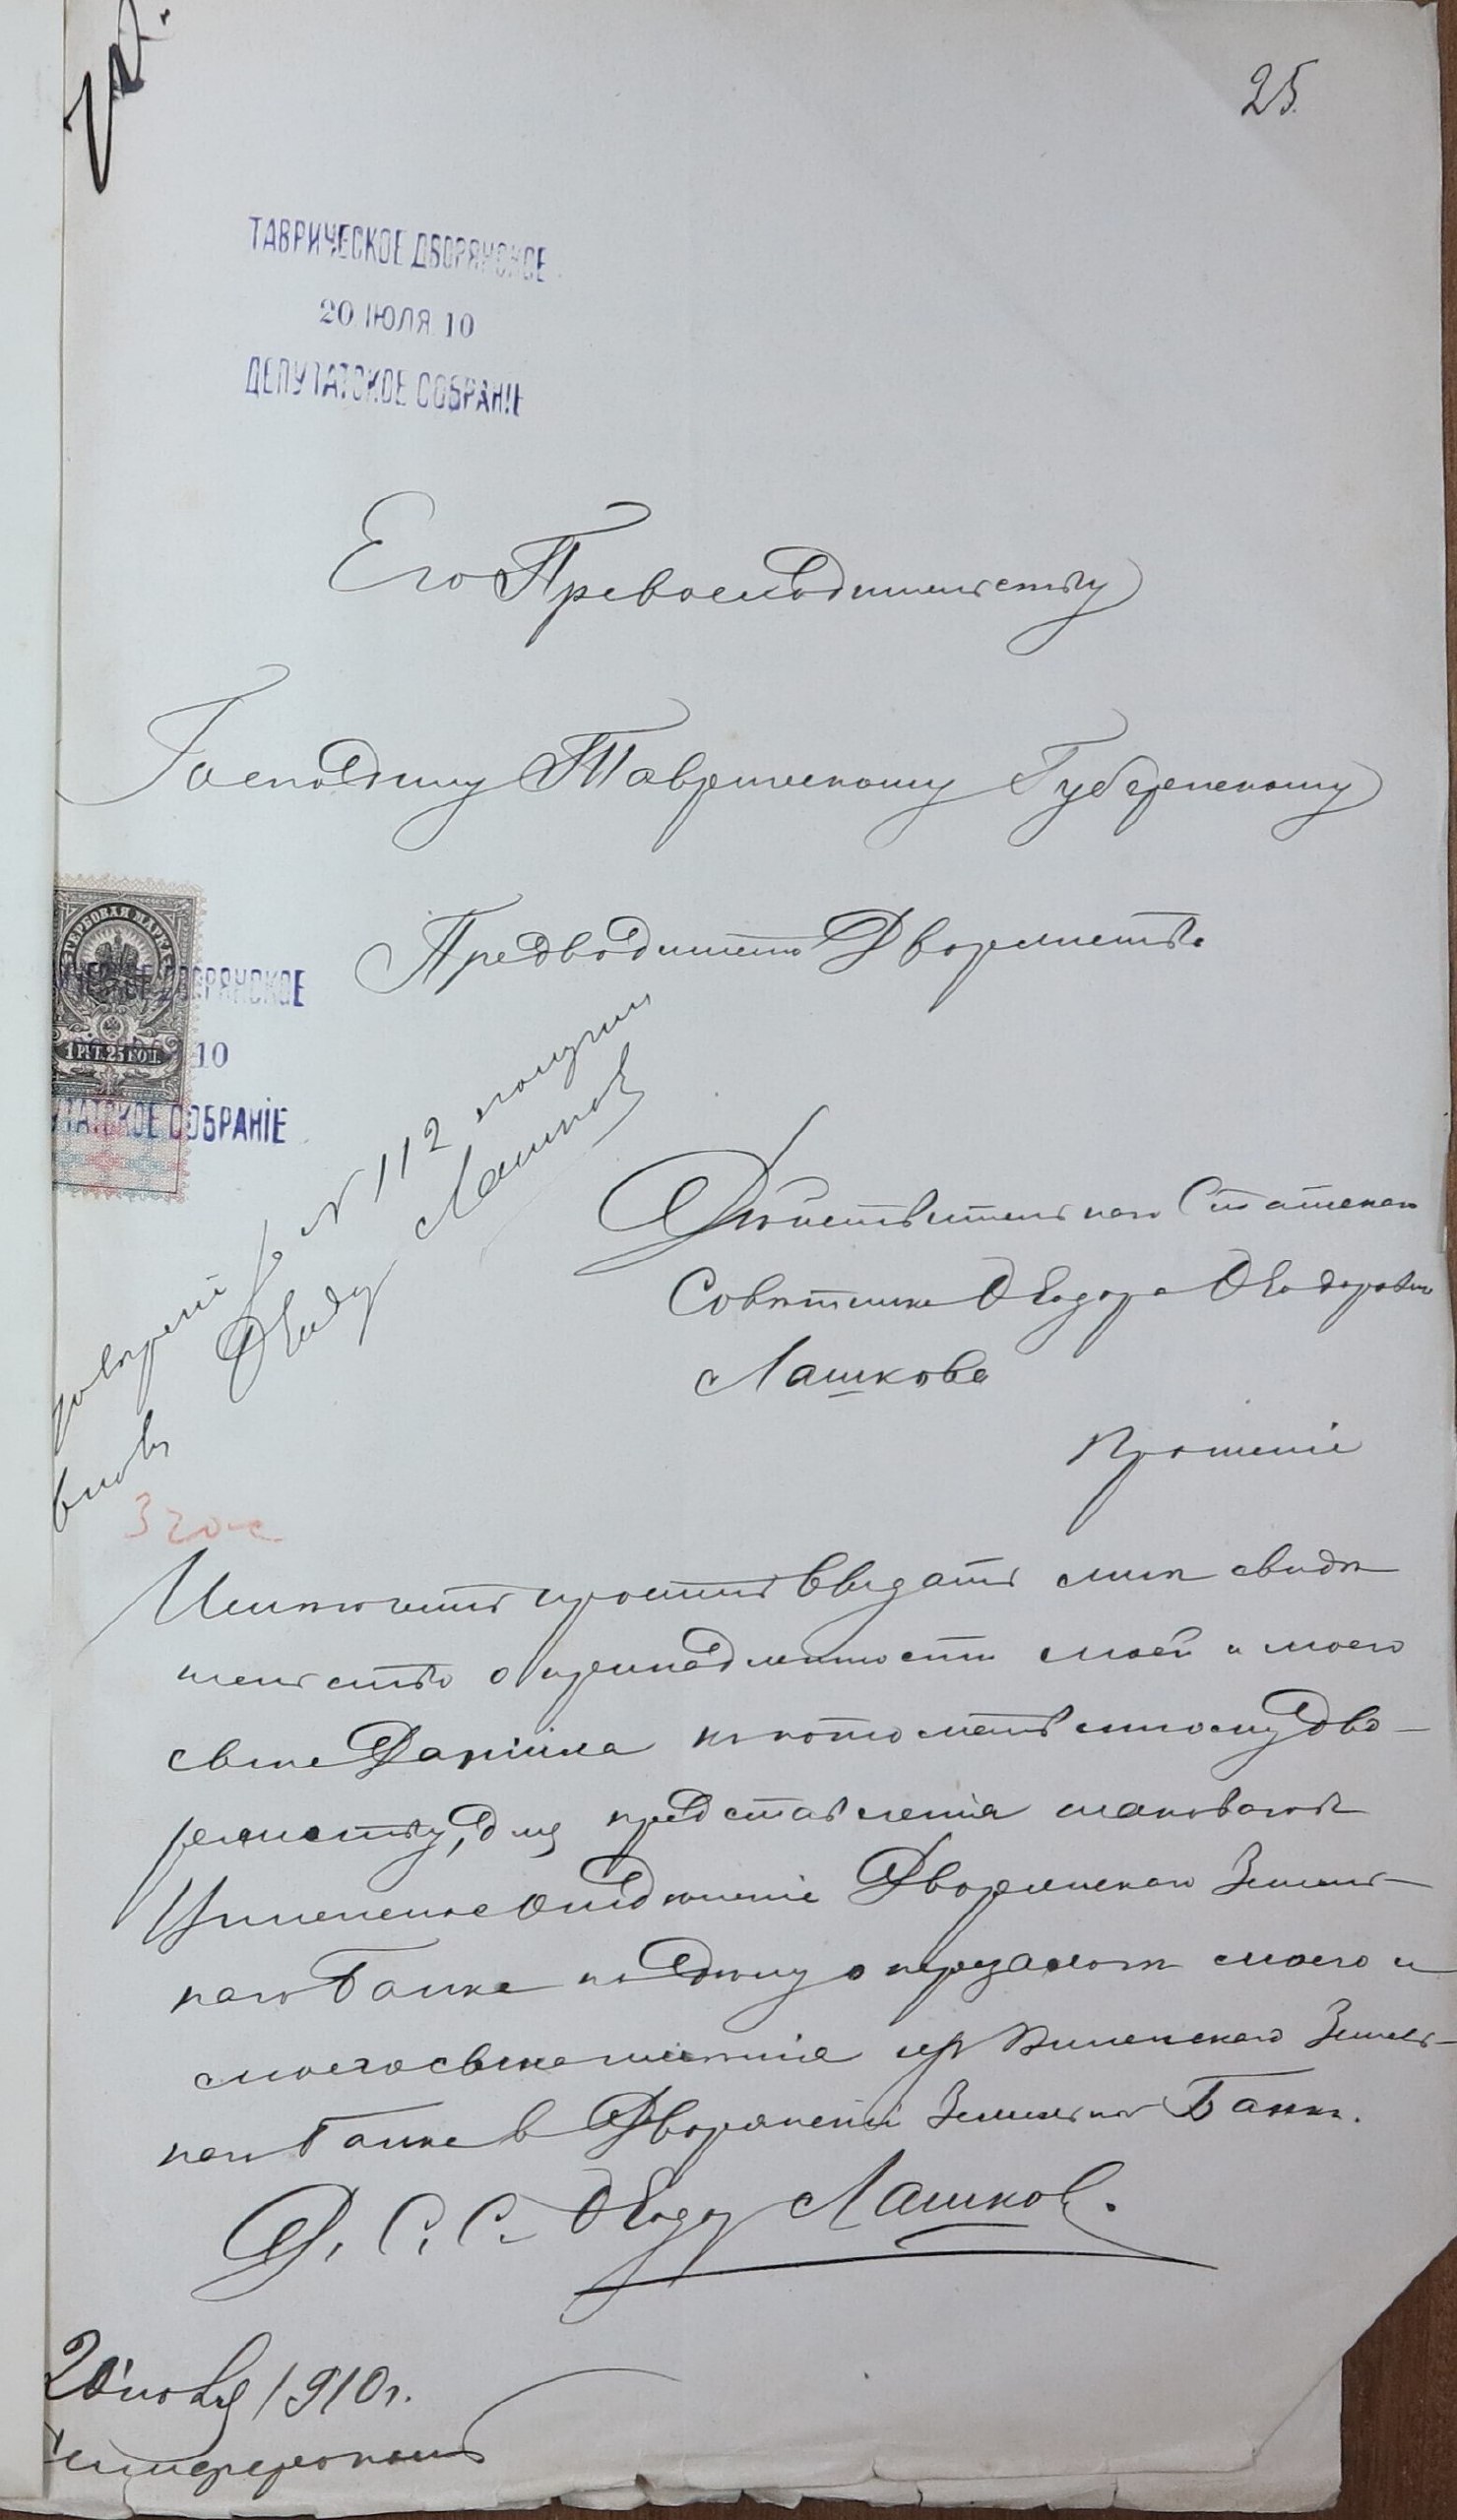 25.
ТАВРИЧЕСКОЕ ДВОРЯНСКОЕ
20 ІЮЛЯ 10
ДЕПУТАТСКОЕ СОБРАНІЕ
Его Превосходительству
Господину Таврическому Губернскому
Предводителю Дворянства
ГЕРБОВАЯ МАРКА
ДВОРЯНСКОЕ
1 РУБ. 25 КОП.
10
СОБРАНІЕ
№ 112 получил
Ѳеодор Лашков
Действительнаго Статскаго
Советника Ѳеодора Ѳеодоровича
Лашкова
Прошеніе
3 20 с
Имею честь просить выдать мне свиде
тельство о принадлежности моей и моего
сына Даніила к потомственному дво-
рянству, для представленія таковаго в
отделеніе Дворянскаго Земель-
наго Банка по делу о перезалоге моего и
моего сына именія из Виленскаго Земель-
наго Банка в Дворянскій Земельный Банк.
Д. С. С. Ѳеодор Лашков.
20 іюля 1910 г.
Симферополь